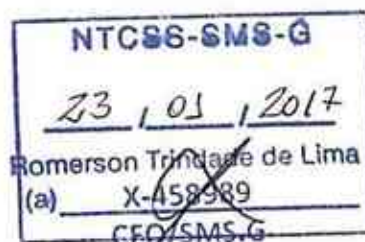 NTCSS-SMS-G
23 / 01 / 2017
Romerson Trindade de Lima
(a) X-458989
CFO/SMS.G